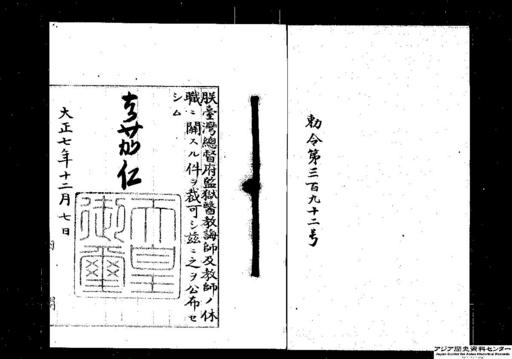 勅令第三百九十二号
朕臺灣總督府監獄醫教誨師及教師ノ休
職ニ關スル件ヲ裁可シ茲ニ之ヲ公布セ
シム
嘉仁
天皇
御璽
大正七年十二月七日
アジア歴史資料センター
Japan Center for Asian Historical Records